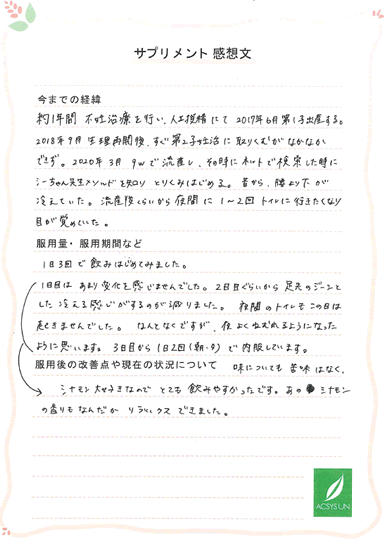 サプリメント 感想文
今までの経緯
約1年間 不妊治療を行い、人工授精にて 2017年6月第1子出産する。
2018年9月 生理再開後、すぐ第2子妊活に 取りくむがなかなか
できず。2020年 3月 9wで流産し、その時にネットで検索した時に
シーちゃん先生メソッドを知り とりくみはじめる。昔から、腰より下が
冷えていた。流産後くらいから夜間に 1〜2回 トイレに行きたくなり
目が覚めていた。
服用量・服用期間など
1日3回で飲みはじめてみました。
1日目は あまり変化を感じませんでした。2日目ぐらいから 足先のジーンと
した 冷える感じがするのが減りました。 夜間のトイレも この日は
起きませんでした。 なんとなくですが、夜 よくねむれるようになった
ように思います。 3日目から 1日2回(朝・夕)で内服しています。
服用後の改善点や現在の状況について 味についても 苦味はなく、
シナモン大好きなので とても 飲みやすかったです。あの シナモン
の香りもなんだか リラックス できました。
ACSYS UN